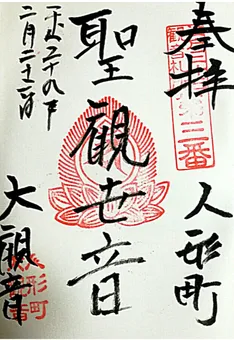 奉拝
第三番
人形町
聖観世音
大観音
人形町
平成二十九年
二月二十二日